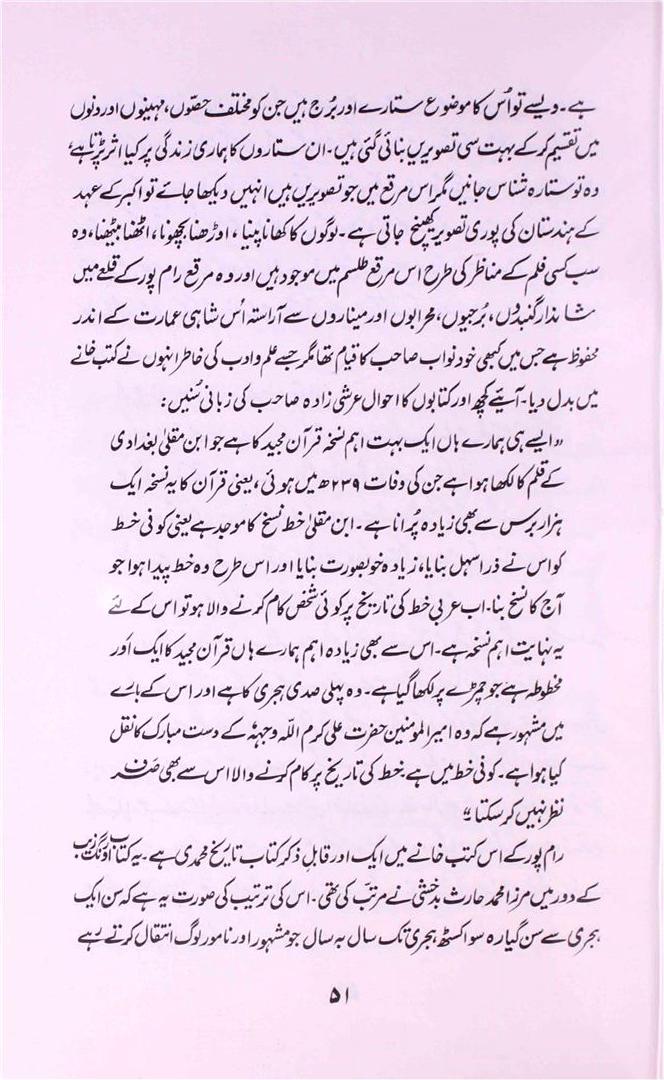 ہے۔ ویسے تو اُس کا موضوع ستارے اور بُرج ہیں جن کو مختلف حصّوں، مہینوں اور دنوں
میں تقسیم کرکے بہت سی تصویریں بنائی گئی ہیں۔ ان ستاروں کا ہماری زندگی پر کیا اثر پڑتا ہے؟
وہ تو ستارہ شناس جانیں مگر اس مرقع میں جو تصویریں ہیں انہیں دیکھا جائے تو اکبر کے عہد
کے ہندستان کی پوری تصویر کھینچ جاتی ہے۔ لوگوں کا کھانا پینا، اوڑھنا بچھونا، اٹھنا بیٹھنا، وہ
سب کسی فلم کے مناظر کی طرح اس مرقع طلسم میں موجود ہیں اور وہ مرقع رام پور کے قلعے میں
شاندار گنبدوں، بُرجیوں، محرابوں اور میناروں سے آراستہ اُس شاہی عمارت کے اندر
محفوظ ہے جس میں کبھی خود نواب صاحب کا قیام تھا مگر جسے علم و ادب کی خاطر انہوں نے کتب خانے
میں بدل دیا۔ آیئے کچھ اور کتابوں کا احوال عرشی زادہ صاحب کی زبانی سُنیں:
"ایسے ہی ہمارے ہاں ایک بہت اہم نسخہ قرآن مجید کا ہے جو ابن مقلیٰ بغدادی
کے قلم کا لکھا ہوا ہے جن کی وفات ۲۳۹ھ میں ہوئی، یعنی قرآن کا یہ نسخہ ایک
ہزار برس سے بھی زیادہ پُرانا ہے۔ ابن مقلیٰ خط نسخ کا موجد ہے یعنی کوفی خط
کو اس نے ذرا سہل بنایا، زیادہ خوبصورت بنایا اور اس طرح وہ خط پیدا ہوا جو
آج کا نسخ بنا۔ اب عربی خط کی تاریخ پر کوئی شخص کام کرنے والا ہو تو اس کے لئے
یہ نہایت اہم نسخہ ہے۔ اس سے بھی زیادہ اہم ہمارے ہاں قرآن مجید کا ایک اور
مخطوطہ ہے جو چمڑے پر لکھا گیا ہے۔ وہ پہلی صدی ہجری کا ہے اور اس کے بارے
میں مشہور ہے کہ وہ امیر المومنین حضرت علی کرم اللہ وجہہٗ کے دست مبارک کا نقل
کیا ہوا ہے۔ کوفی خط میں ہے۔ خط کی تاریخ پر کام کرنے والا اس سے بھی صَرفِ
نظر نہیں کرسکتا"
رام پور کے اس کتب خانے میں ایک اور قابلِ ذکر کتاب تاریخ محمدی ہے۔ یہ کتاب اورنگ زیب
کے دور میں مرزا محمد حارث بدخشی نے مرتب کی تھی۔ اس کی ترتیب کی صورت یہ ہے کہ سن ایک
ہجری سے سن گیارہ سو اکسٹھ ہجری تک سال بہ سال جو مشہور اور نامور لوگ انتقال کرتے رہے
۵۱